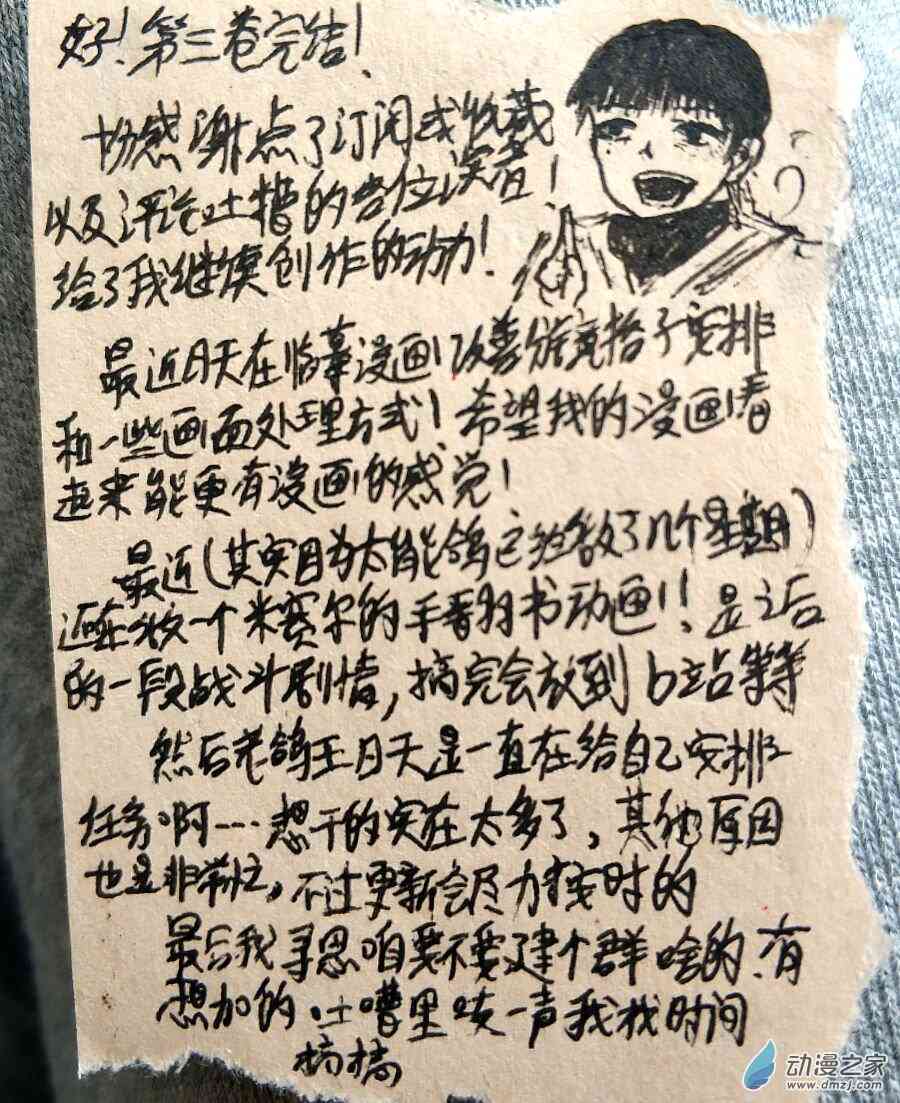 好！第三卷完结！
感谢点了订阅或收藏
以及评论吐槽的各位读者！
给了我继续创作的动力！
最近日天在临摹漫画！改善分镜格子安排
和一些画面处理方式！希望我的漫画看
起来能更有漫画的感觉！
最近(其实因为太能鸽已经做了几个星期)
还在做一个米赛尔的手翻书动画！！是之后
的一段战斗剧情，搞完会放到b站等等
然后老鸽王日天是一直在给自己安排
任务啊……想干的实在太多了，其他原因
也是非常忙，不过更新会尽力按时的
最后我寻思咱要不要建个群啥的、有
想加的吐嘈里吱一声我找时间
搞搞
动漫之家
www.dmzj.com